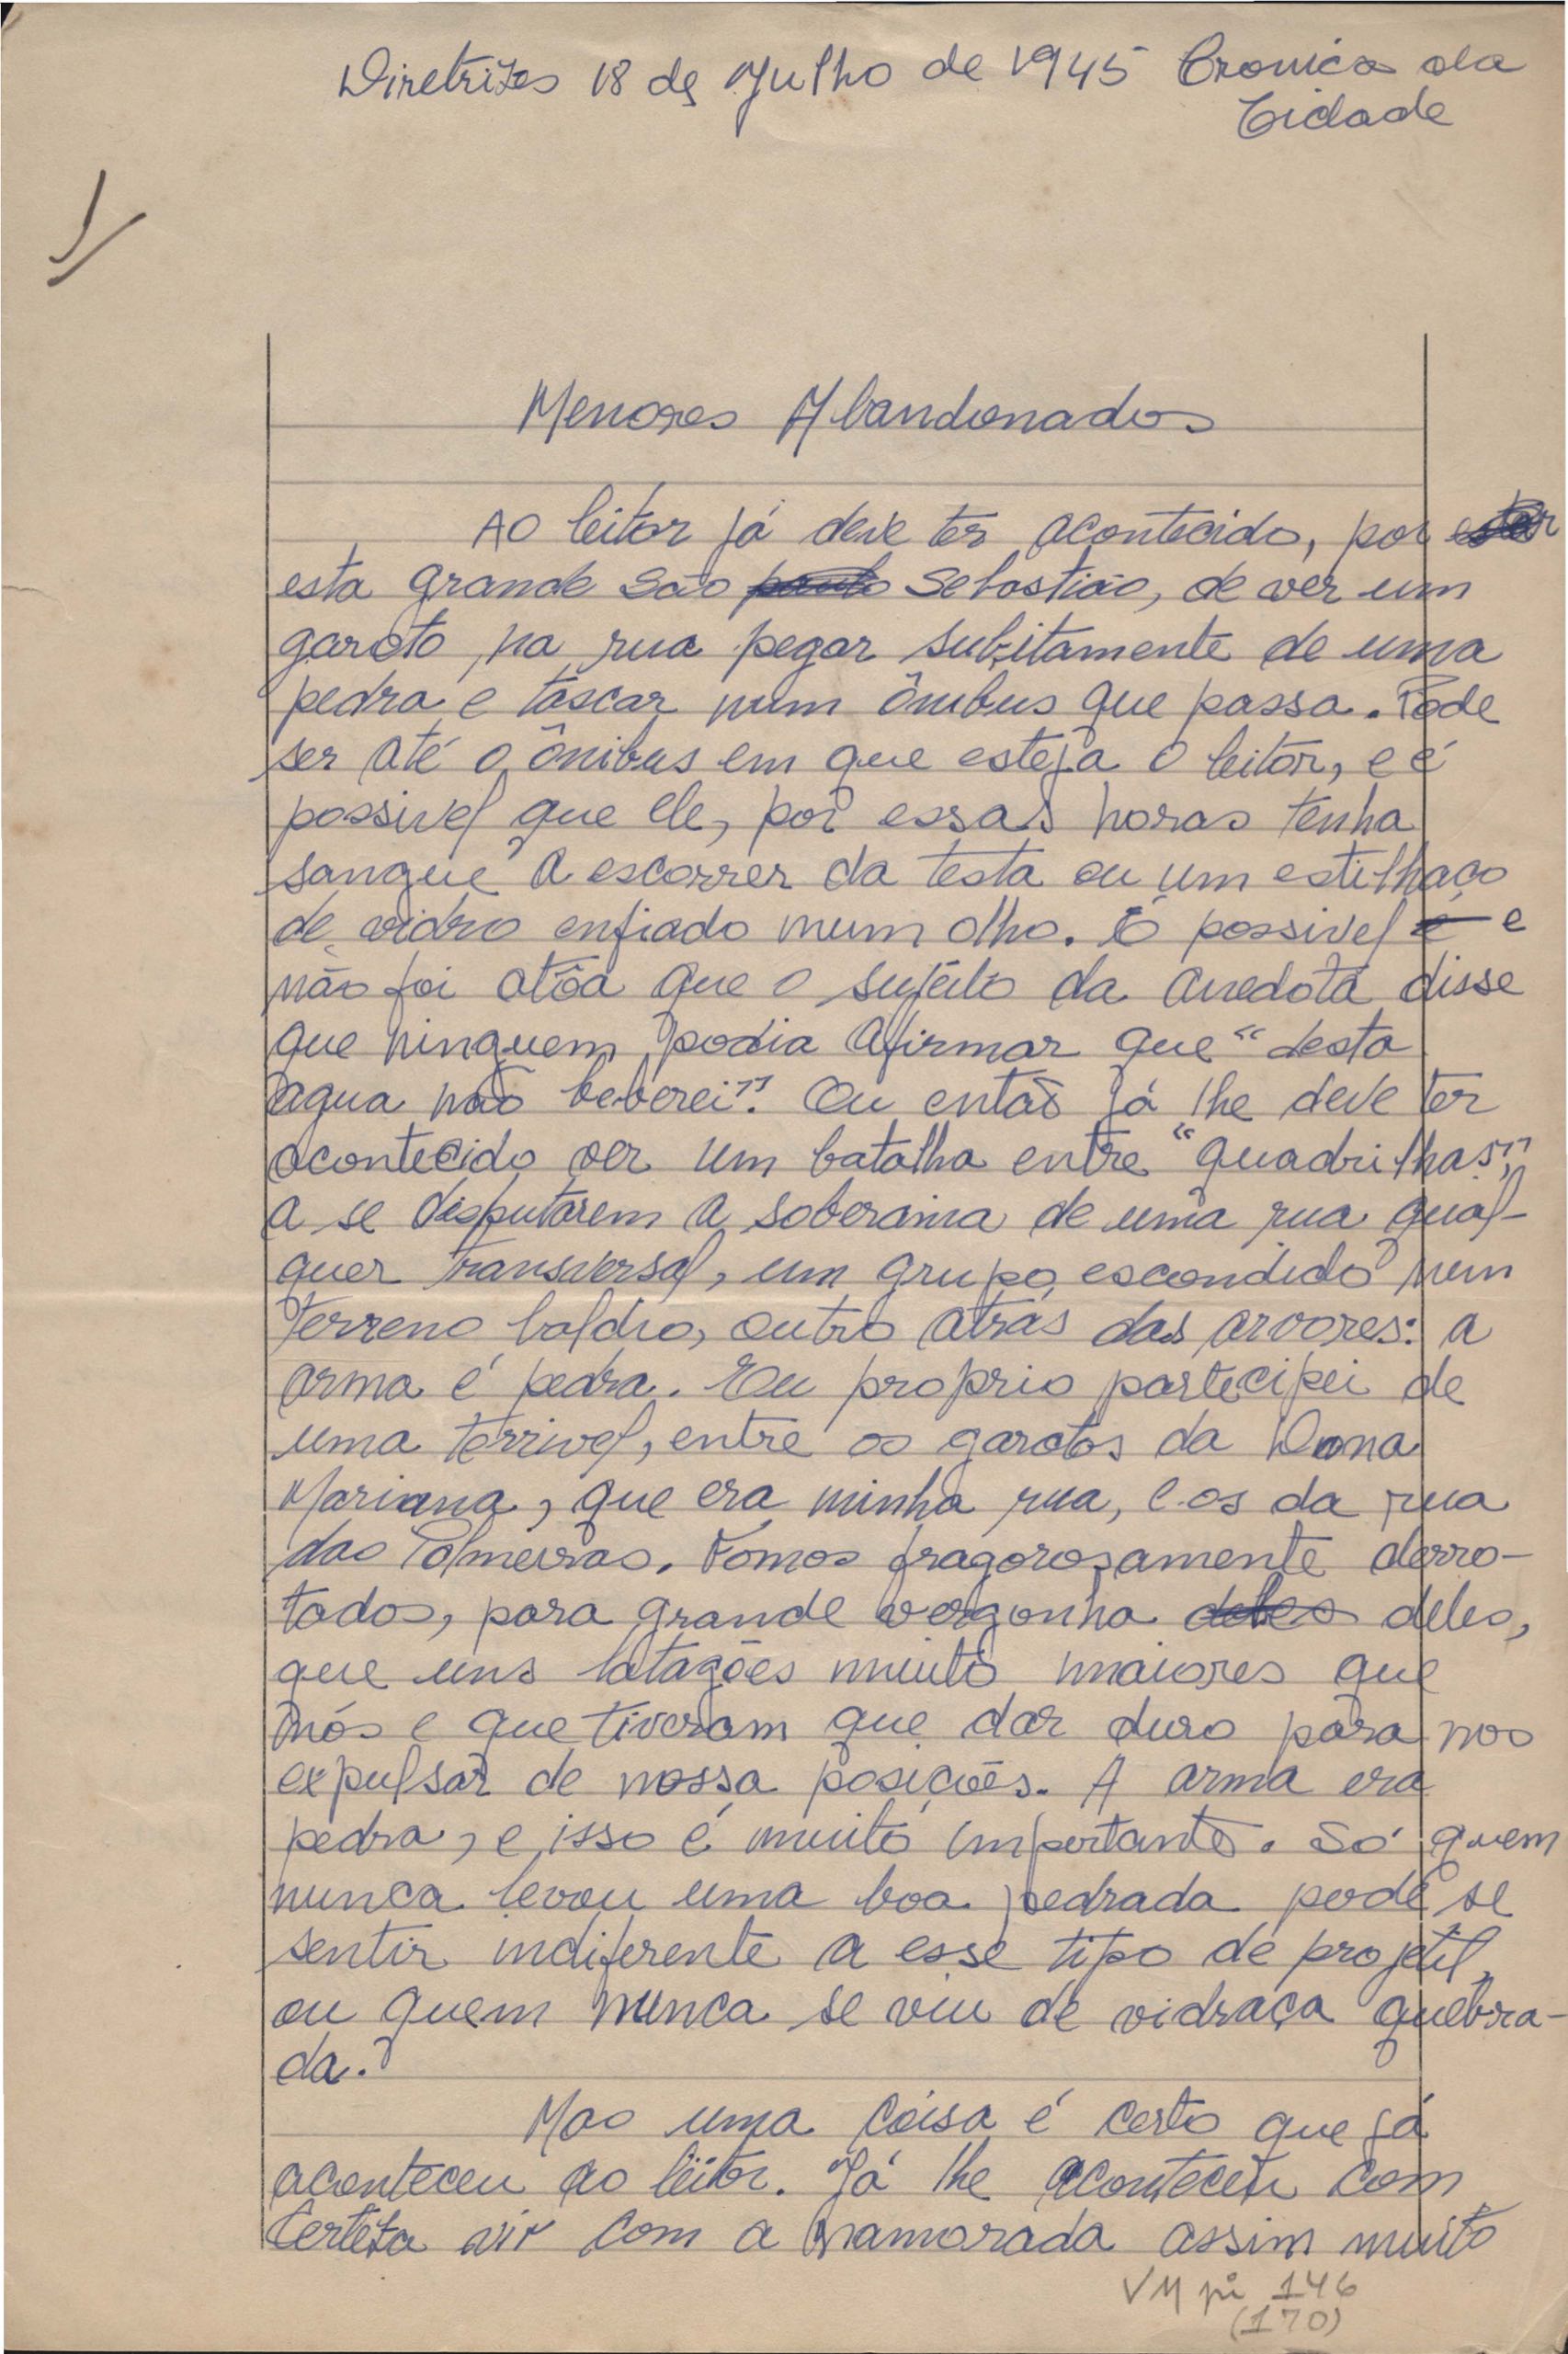 Diretrizes 18 de Julho de 1945 Cronica da
Cidade
1/
Menores Abandonados
Ao leitor já deve ter acontecido, por
esta grande São Sebastião, de ver um
garoto, na rua pegar subitamente de uma
pedra e tascar num ônibus que passa. Pode
ser até o ônibus em que esteja o leitor, e é
possivel que ele, por essas horas tenha
sangue a escorrer da testa ou um estilhaço
de vidro enfiado num olho. É possivel e
não foi atôa que o sujeito da anedota disse
que ninguem podia afirmar que "desta
agua não beberei". Ou então já lhe deve ter
acontecido ver um batalha entre "quadrilhas",
a se disputarem a soberania de uma rua qual-
quer transversal, um grupo escondido num
terreno baldio, outro atrás das arvores: a
arma é pedra. Eu proprio partecipei de
uma terrivel, entre os garotos da Dona
Mariana, que era minha rua, e os da rua
das Palmeiras. Fomos fragorosamente derro-
tados, para grande vergonha deles,
que uns latagões muito maiores que
nós e que tiveram que dar duro para nos
expulsar de nossa posições. A arma era
pedra, e isso é muito importante. Só quem
nunca levou uma boa pedrada pode se
sentir indiferente a esse tipo de projetil,
ou quem nunca se viu de vidraça quebra-
da.
Mas uma coisa é certo que já
aconteceu ao leitor. Já lhe aconteceu com
certeza vir com a namorada assim muito
VM pi 146
(170)